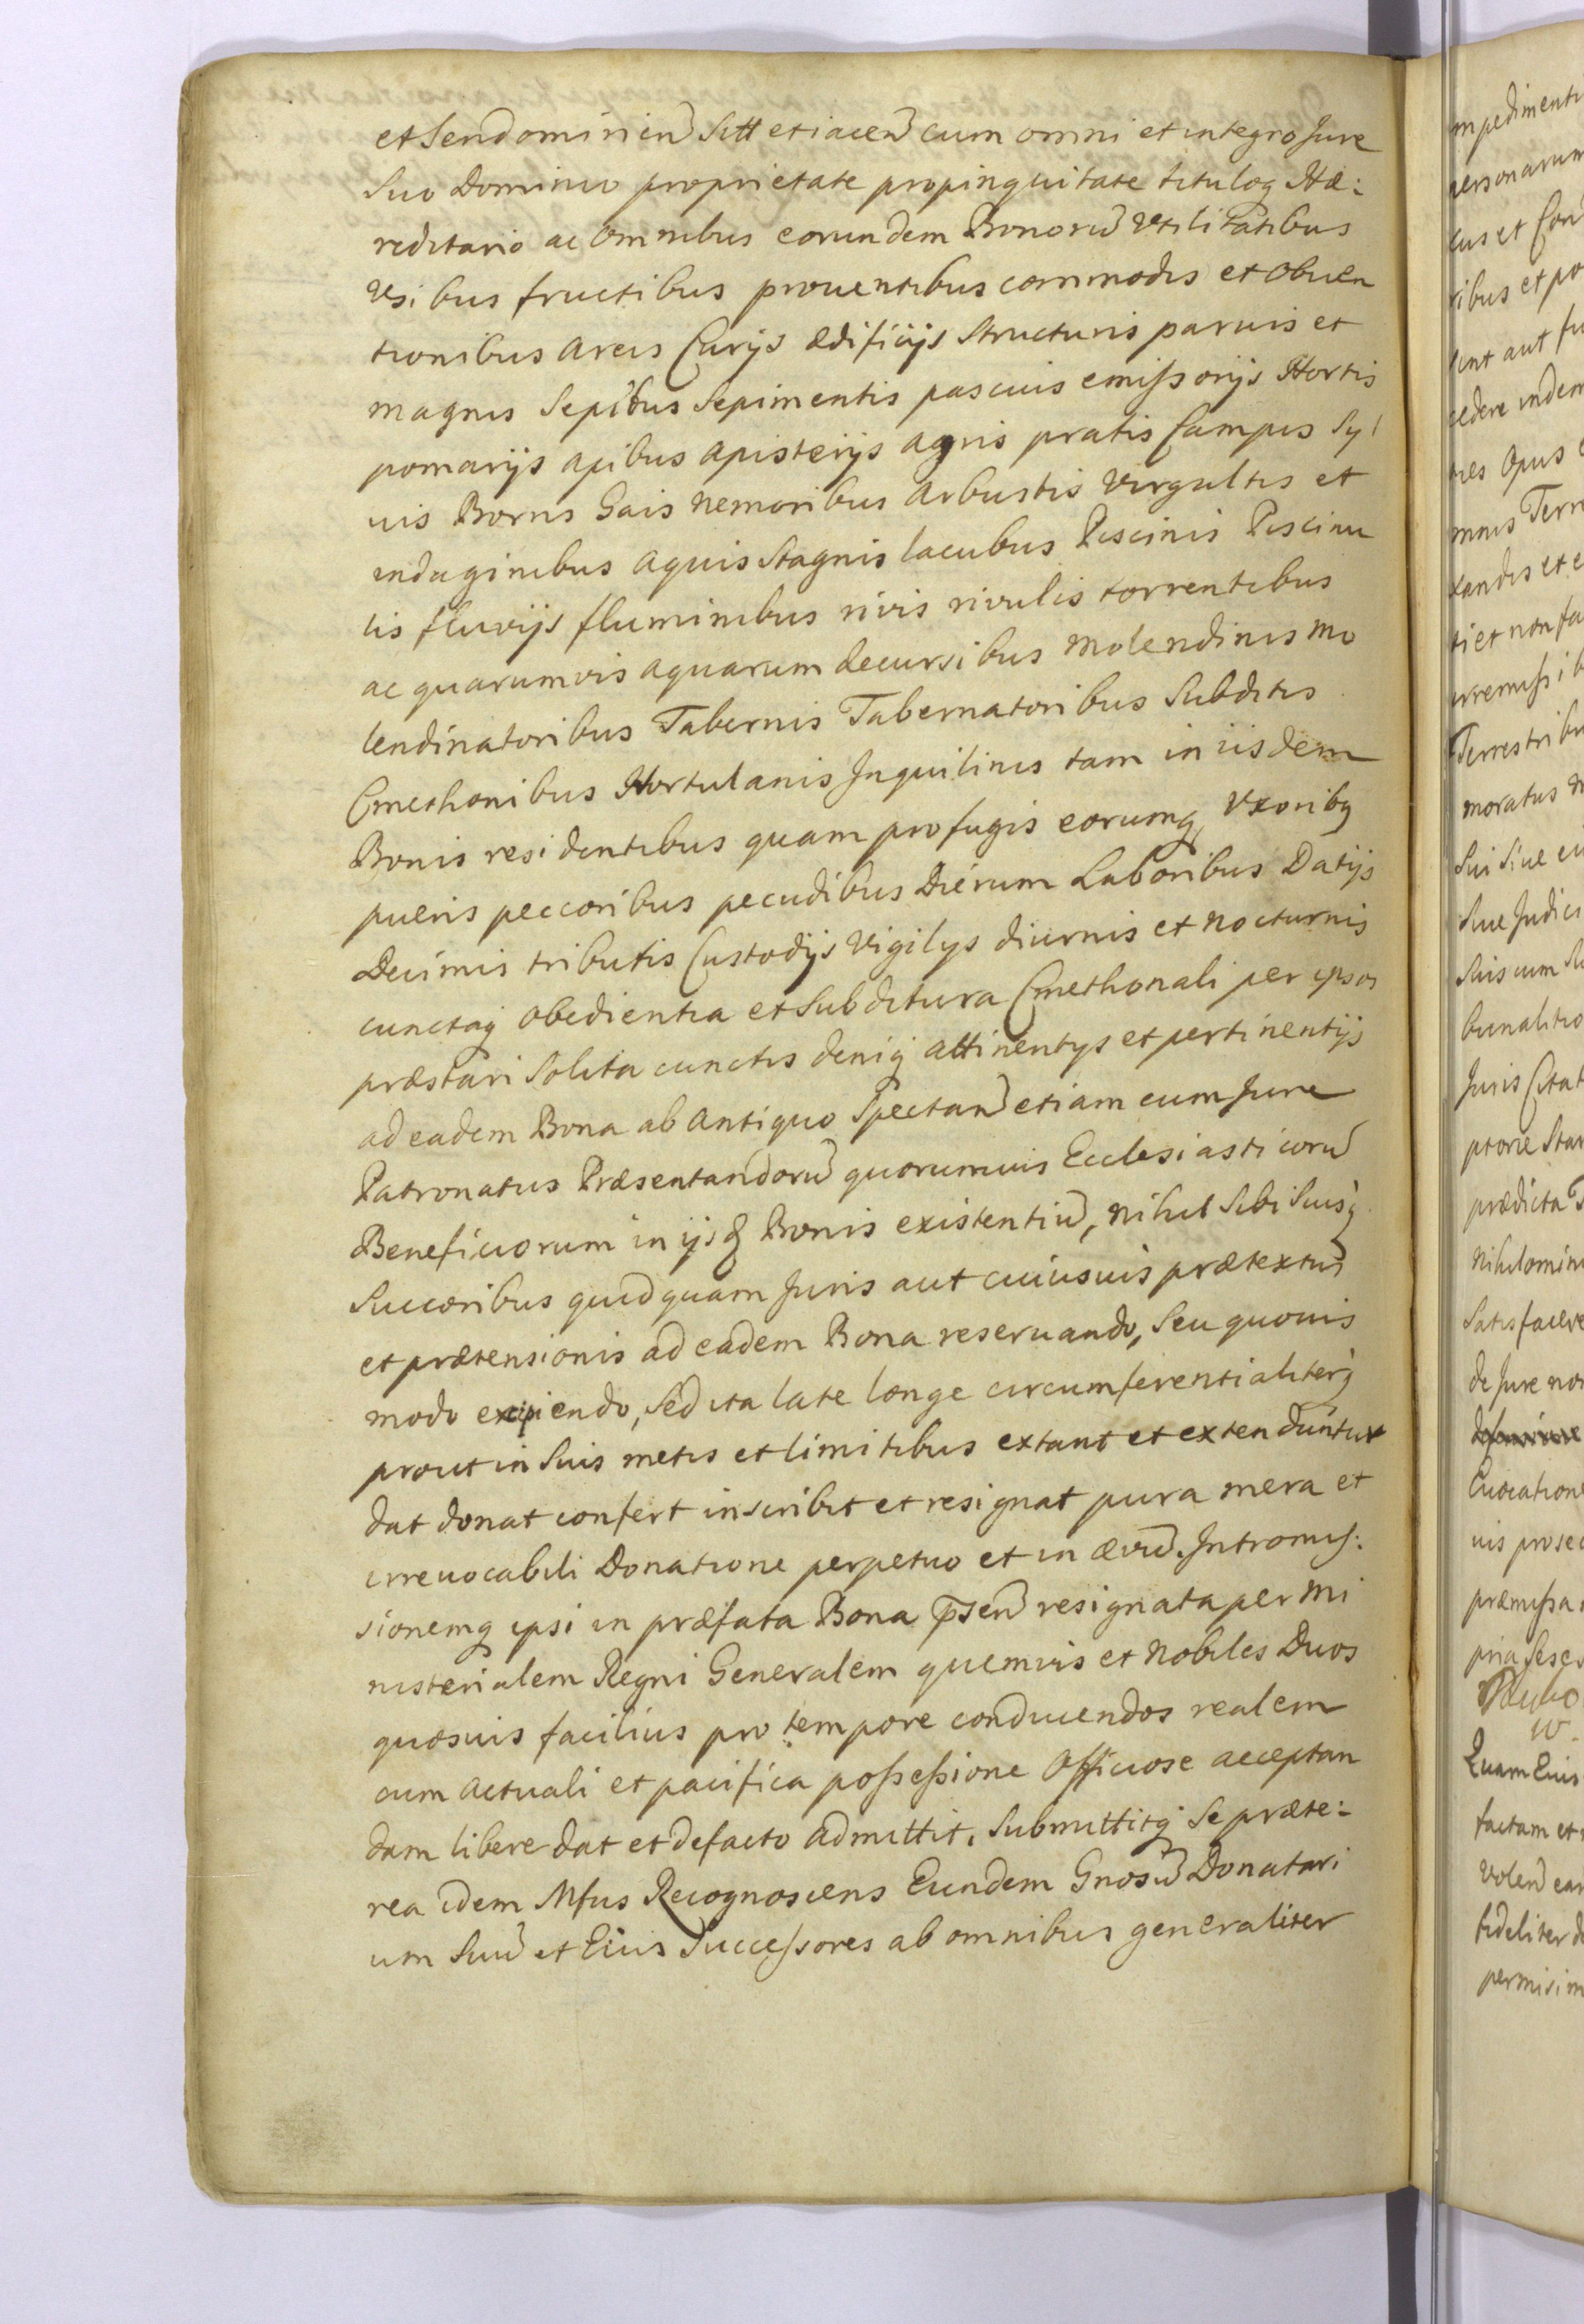 et Sendomirien Sitt et iacen cum omni et integro Jure
Suo Dominio proprietate propinquitate tituloq Hæ:
reditario ac omnibus eorundem Bonorũ Vtilitatibus
Vsibus fructibus prouentibus commodis et obuen
tionibus areis Curijs ædificijs Structuris paruis et
magnis Sepibus Sepimentis pascuis emissorijs Hortis
pomarijs apibus apisterijs agris pratis Campis Syl
uis Borris Gais nemoribus arbustis Virgultis et
indaginibus aquis Stagnis lacubus Piscinis Piscinu
lis fluvijs fluminibus rivis rivulis torrentibus
ac quarumvis aquarum decursibus molendinis mo
lendinatoribus Tabernis Tabernatoribus Subditis
Cmethonibus Hortulanis Inquilinis tam in iisdem
Bonis residentibus quam profugis eorumq Vxoribq
pueris peccoribus pecudibus Dierum Laboribus Datijs
Decimis tributis Custodijs Vigilijs diurnis et nocturnis
cunctaq obedientia et Subditura Cmethonali per ipsos
præstari Solita cunctis deniq attinentijs et pertinentijs
ad eadem Bona ab antiquo Spectan etiam cum Jure
Patronatus Præsentandorũ quorumuis Ecclesiasticorũ
Beneficiorum in ijsd Bonis existentiũ, nihil Sibi Suisq
Succoribus quidquam Juris aut cuiusuis prætextũ
et prætensionis ad eadem Bona reseruando, Seu quouis
modo excipiendo, Sed ita late longe circumferentialiterq
prout in Suis metis et limitibus extant et extenduntur
dat donat confert inscribit et resignat pura mera et
irreuocabili Donatione perpetuo et in ævũ. Intromis:
sionemq ipsi in præfata Bona p̃sen resignata per Mi
nisterialem Regni Generalem quemvis et Nobiles Duos
quosuis facilius pro tempore conducendos realem
cum actuali et pacifica possessione Officiose acceptan
dam libere dat et defacto admittit. Submittitq Se præte:
rea idem Mfus Recognoscens Eundem Gnosũ Donatari
um Suũ et Eius Successores ab omnibus generaliter